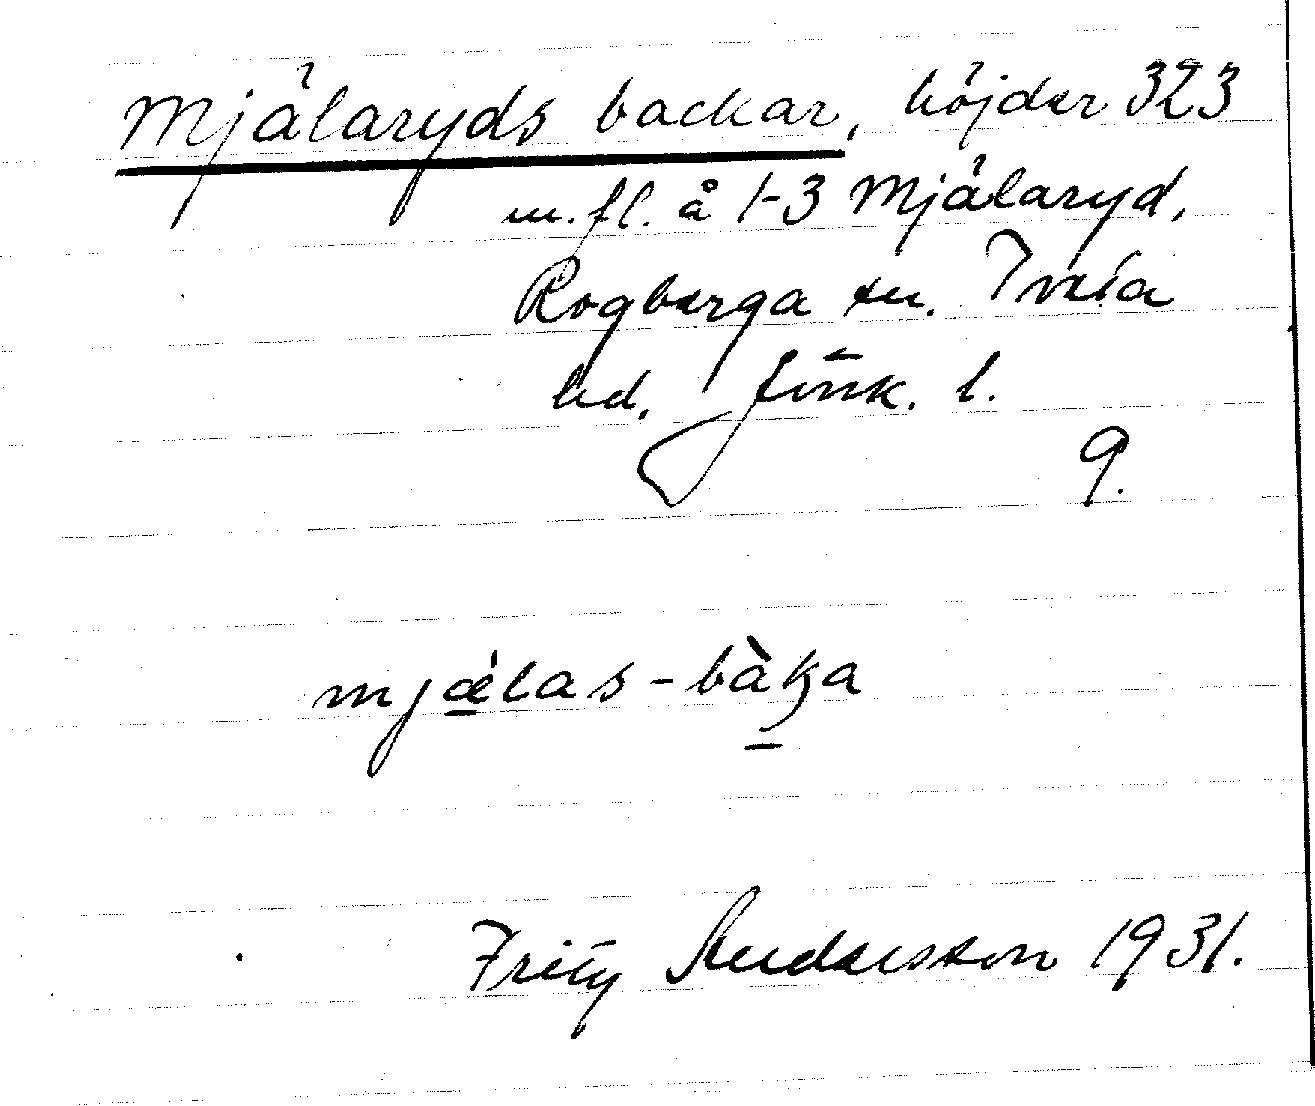 Mjälaryds backar, höjder 323
m.fl. å 1-3 Mjälaryd,
Rogberga sn. Tveta
hd. Jönk. l.
9.
mjǽlas-bàka
Fritz Andersson 1931.